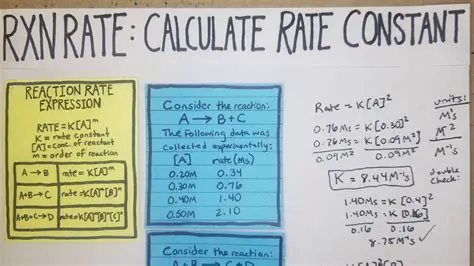 RXN RATE: CALCULATE RATE CONSTANT
REACTION RATE
EXPRESSION
RATE=K[A]ᵐ
K = rate constant
[A]=conc. of reactant
m = order of reaction
A → B rate=K[A]ᵐ
A+B→C rate=K[A]ᵐ[B]ⁿ
A+B+C→D rate=K[A]ᵐ[B]ⁿ[C]ᵖ
Consider the reaction:
A → B+C
The following data was
collected experimentally:
[A] rate(M/s)
0.20M 0.34
0.30M 0.76
0.40M 1.40
0.50M 2.10
Consider the reaction:
Rate = K[A]²
0.76M/s = K[0.30]²
0.76M/s = K[0.09M²]
0.09M² 0.09M²
K = 8.44M⁻¹s
units:
M/s
M²
M⁻¹s
double
check:
1.40M/s = K[0.4]²
1.40M/s = K[0.16]
0.16 0.16
8.75M⁻¹s ✓